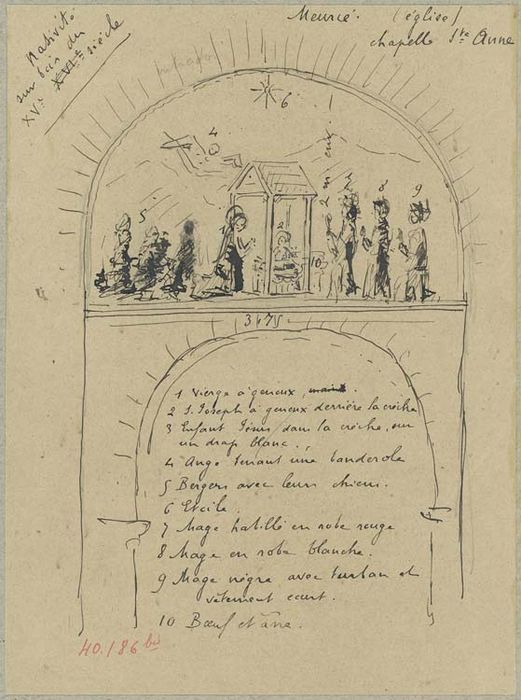 Meurcé. (église)
chapelle Ste Anne
Nativité
sur bois du
XVe XVIe siècle
6
4
5
1
2
7
8
9
10
3,75
1 Vierge à genoux,
2 S. Joseph à genoux derrière la crèche
3 Enfant Jésus dans la crèche, sur
un drap blanc.
4 Ange tenant une banderole
5 Bergers avec leurs chiens.
6 Etoile
7 Mage habillé en robe rouge
8 Mage en robe blanche.
9 Mage nègre avec turban et
vêtement court.
10 Bœuf et âne.
40.186 bis